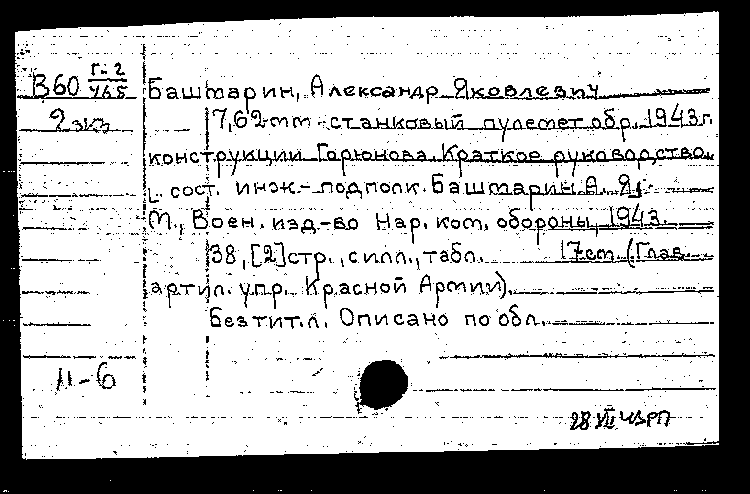 В60 Г-2/465
Баштарин, Александр Яковлевич
2 экз
7,62-mm станковый пулемет обр. 1943 г.
конструкции Горюнова. Краткое руководство.
сост. инж.-подполк. Баштарин А. Я.
М., Воен. изд-во Нар. ком. обороны, 1943.
38, [2] стр., с илл., табл. 17 см. (Глав.
артил. упр. Красной Армии).
Без тит. л. Описано по обл.
11-6
28 VII 43